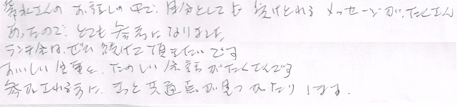 さんの お話しの中で、自分としても 受けとれる メッセージが、たくさん
あったので、とても 参考に なりました。
ランチ会は、ぜひ 続けて頂きたいです
おいしい 食事と、たのしい 会話が たくさんです
参加される方に、きっと 共通点が 見つかったり します。